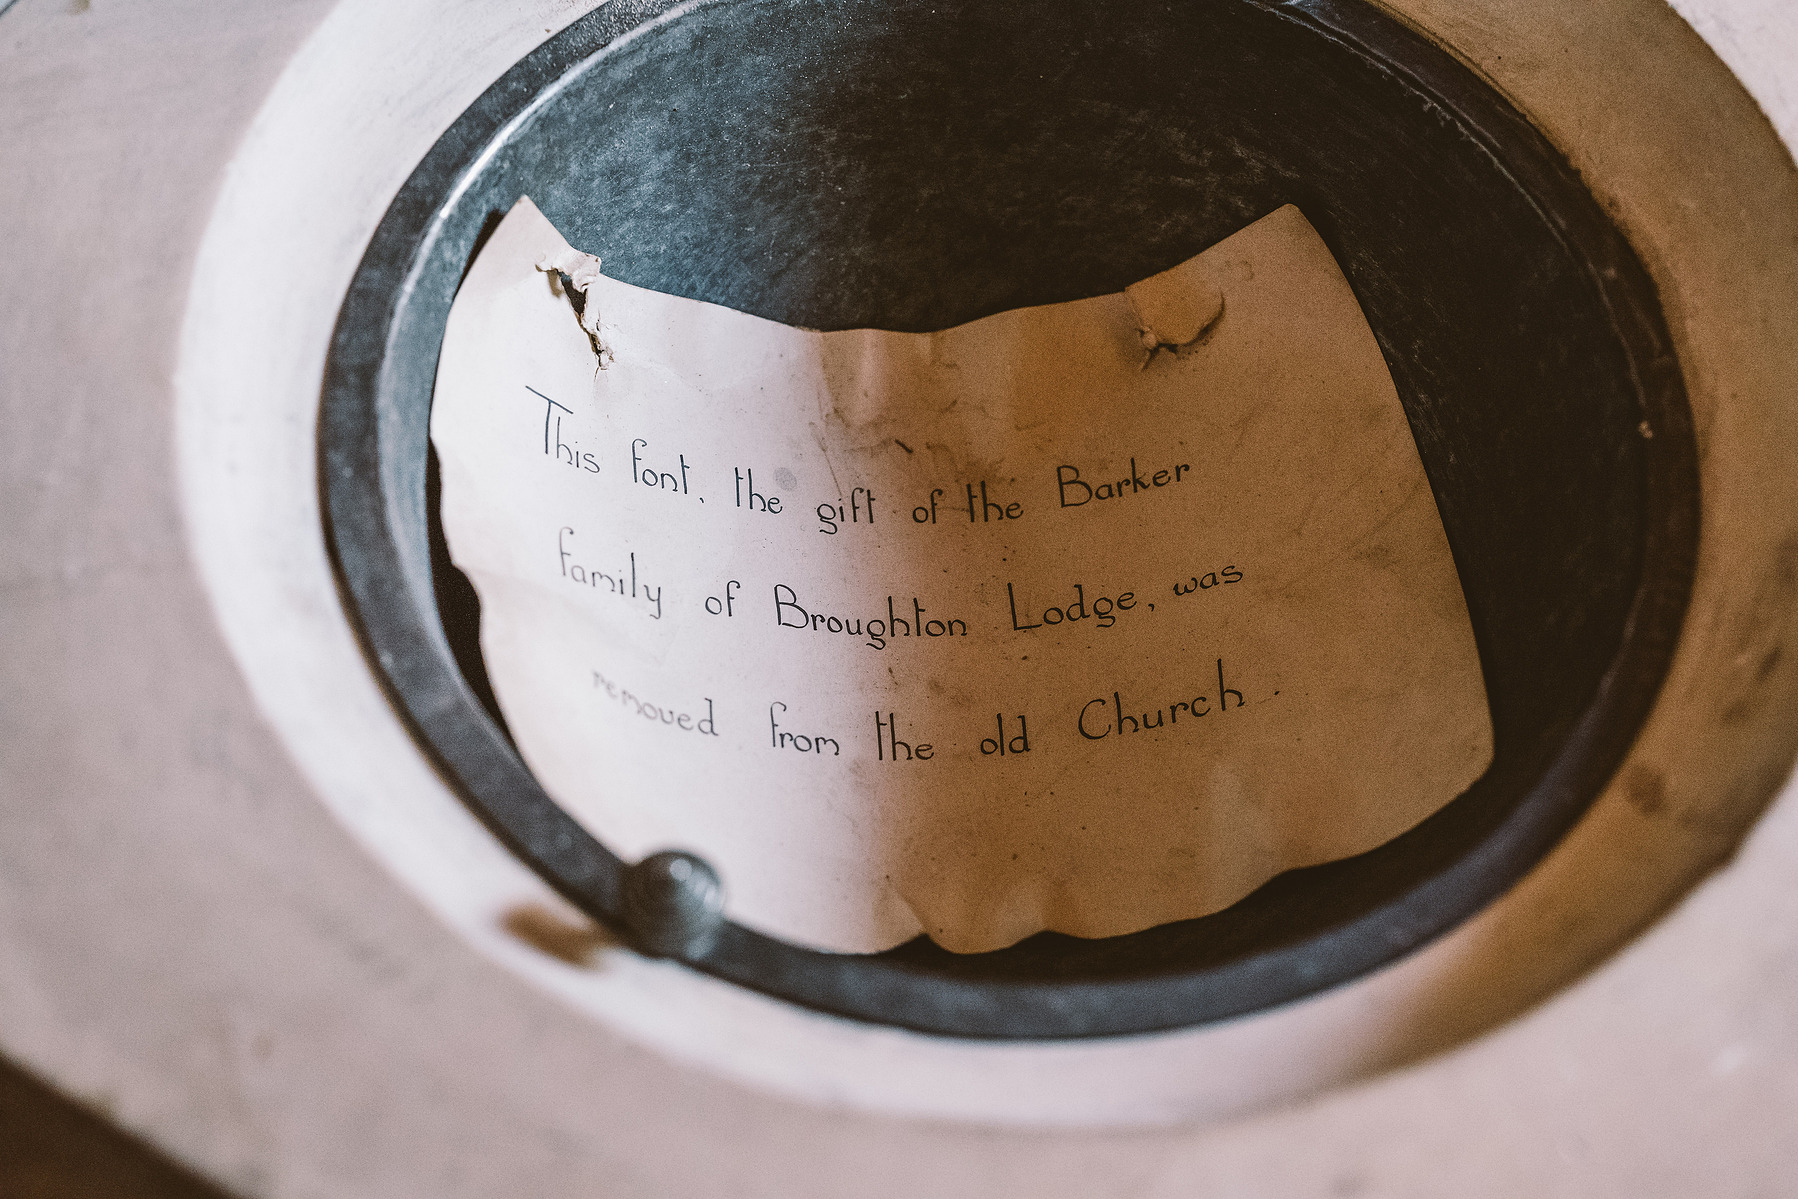 This font, the gift of the Barker
family of Broughton Lodge, was
removed from the old Church.